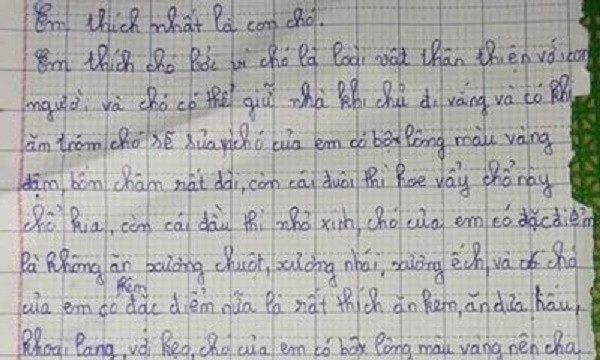 Em thích nhất là con chó.
Em thích chó bởi vì chó là loài vật thân thiện với con
người và chó có thể giữ nhà khi chủ đi vắng và có khi
ăn trộm chó sẽ sủa, chó của em có bộ lông màu vàng
đậm, bốn chân rất dài, còn cái đuôi thì hoe vẩy chổ này
chổ kia, còn cái đầu thì nhỏ xinh, chó của em có đặc điểm
là không ăn xương chuột, xương nhái, xương ếch, và chó
của em có thêm đặc điểm nữa là rất thích ăn kem, ăn dưa hấu,
khoai lang, với kẹo, chó của em có bộ lông màu vàng nên cha